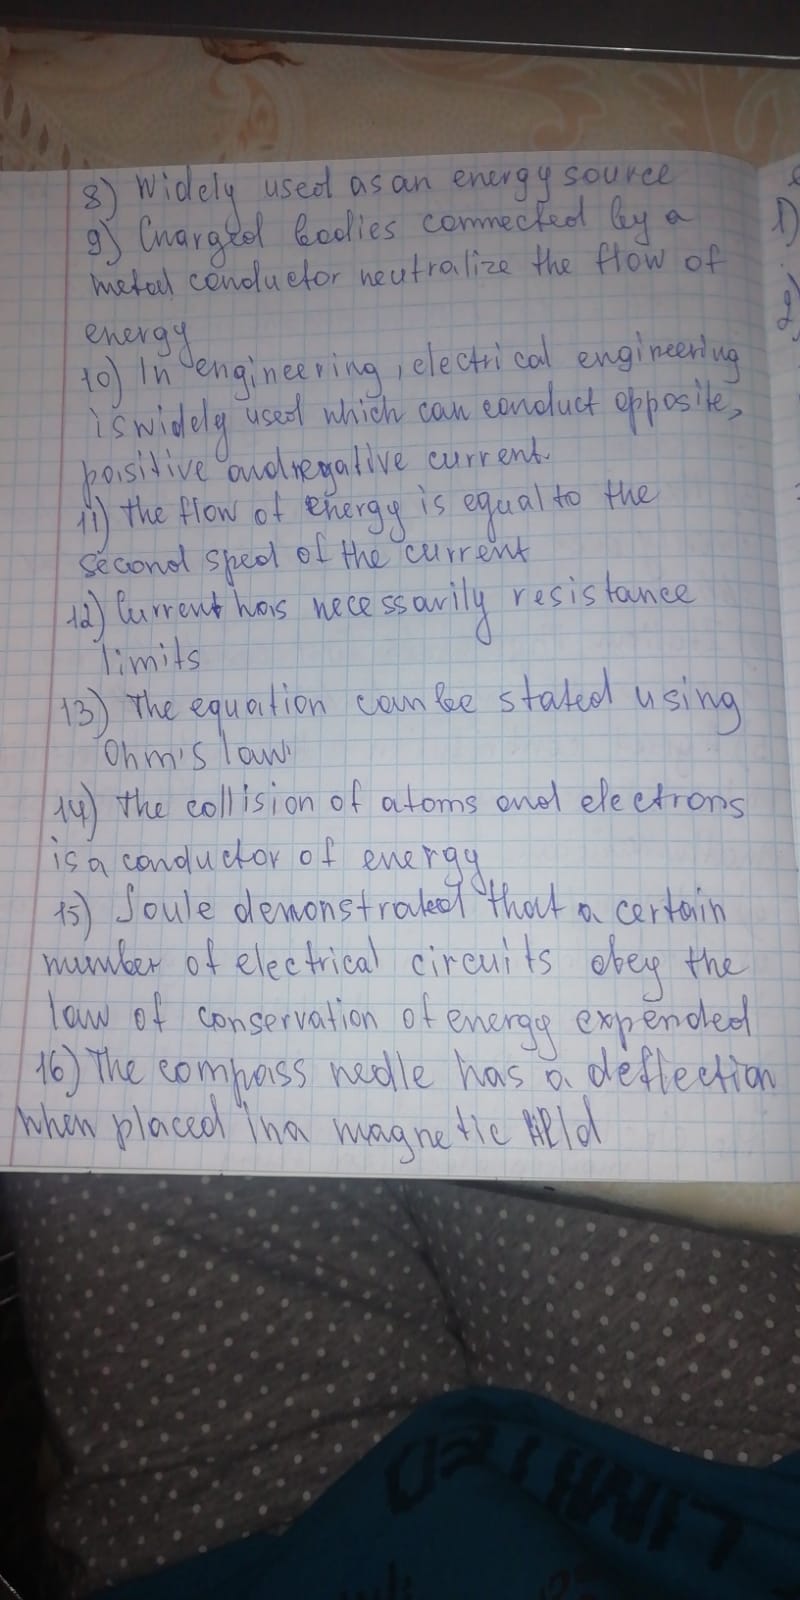 8) Widely used as an energy source
9) Charged bodies connected by a
metal conductor neutralize the flow of
energy
10) In engineering, electrical engineering
is widely used which can conduct opposite,
poisitive and negative current.
11) the flow of energy is equal to the
second sped of the current
12) Current has necessarily resistance
limits
13) The equation can be stated using
Ohm's law
14) the collision of atoms and electrons
is a conductor of energy
15) Joule demonstrated that a certain
number of electrical circuits obey the
law of conservation of energy expended
16) The compass nedle has a deflection
when placed in a magnetic field
1)
2)
LIMITED